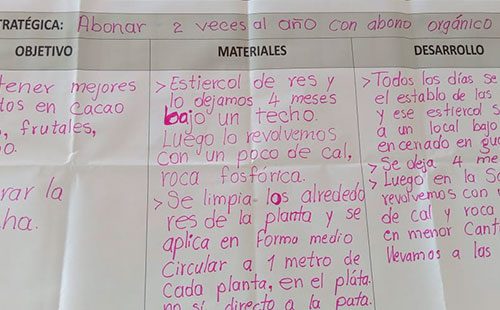 TRATÉGICA: Abonar 2 veces al año con abono orgánico
OBJETIVO
tener mejores
tos en cacao
, frutales,
o.
rar la
ha.
MATERIALES
> Estiercol de res y
lo dejamos 4 meses
bajo un techo.
Luego lo revolvemos
con un poco de cal,
roca fosfórica.
> Se limpia los alrrededo
res de la planta y se
aplica en forma medio
Circular a 1 metro de
Cada planta, en el pláta.
no si directo a la pata.
DESARROLLO
> Todos los días se
el establo de las
y ese estiercol s
a un local bajo
encenado en gua
> Se deja 4 me
> Luego en la So
revolvemos con
de cal y roca
en menor Cant
llevamos a las